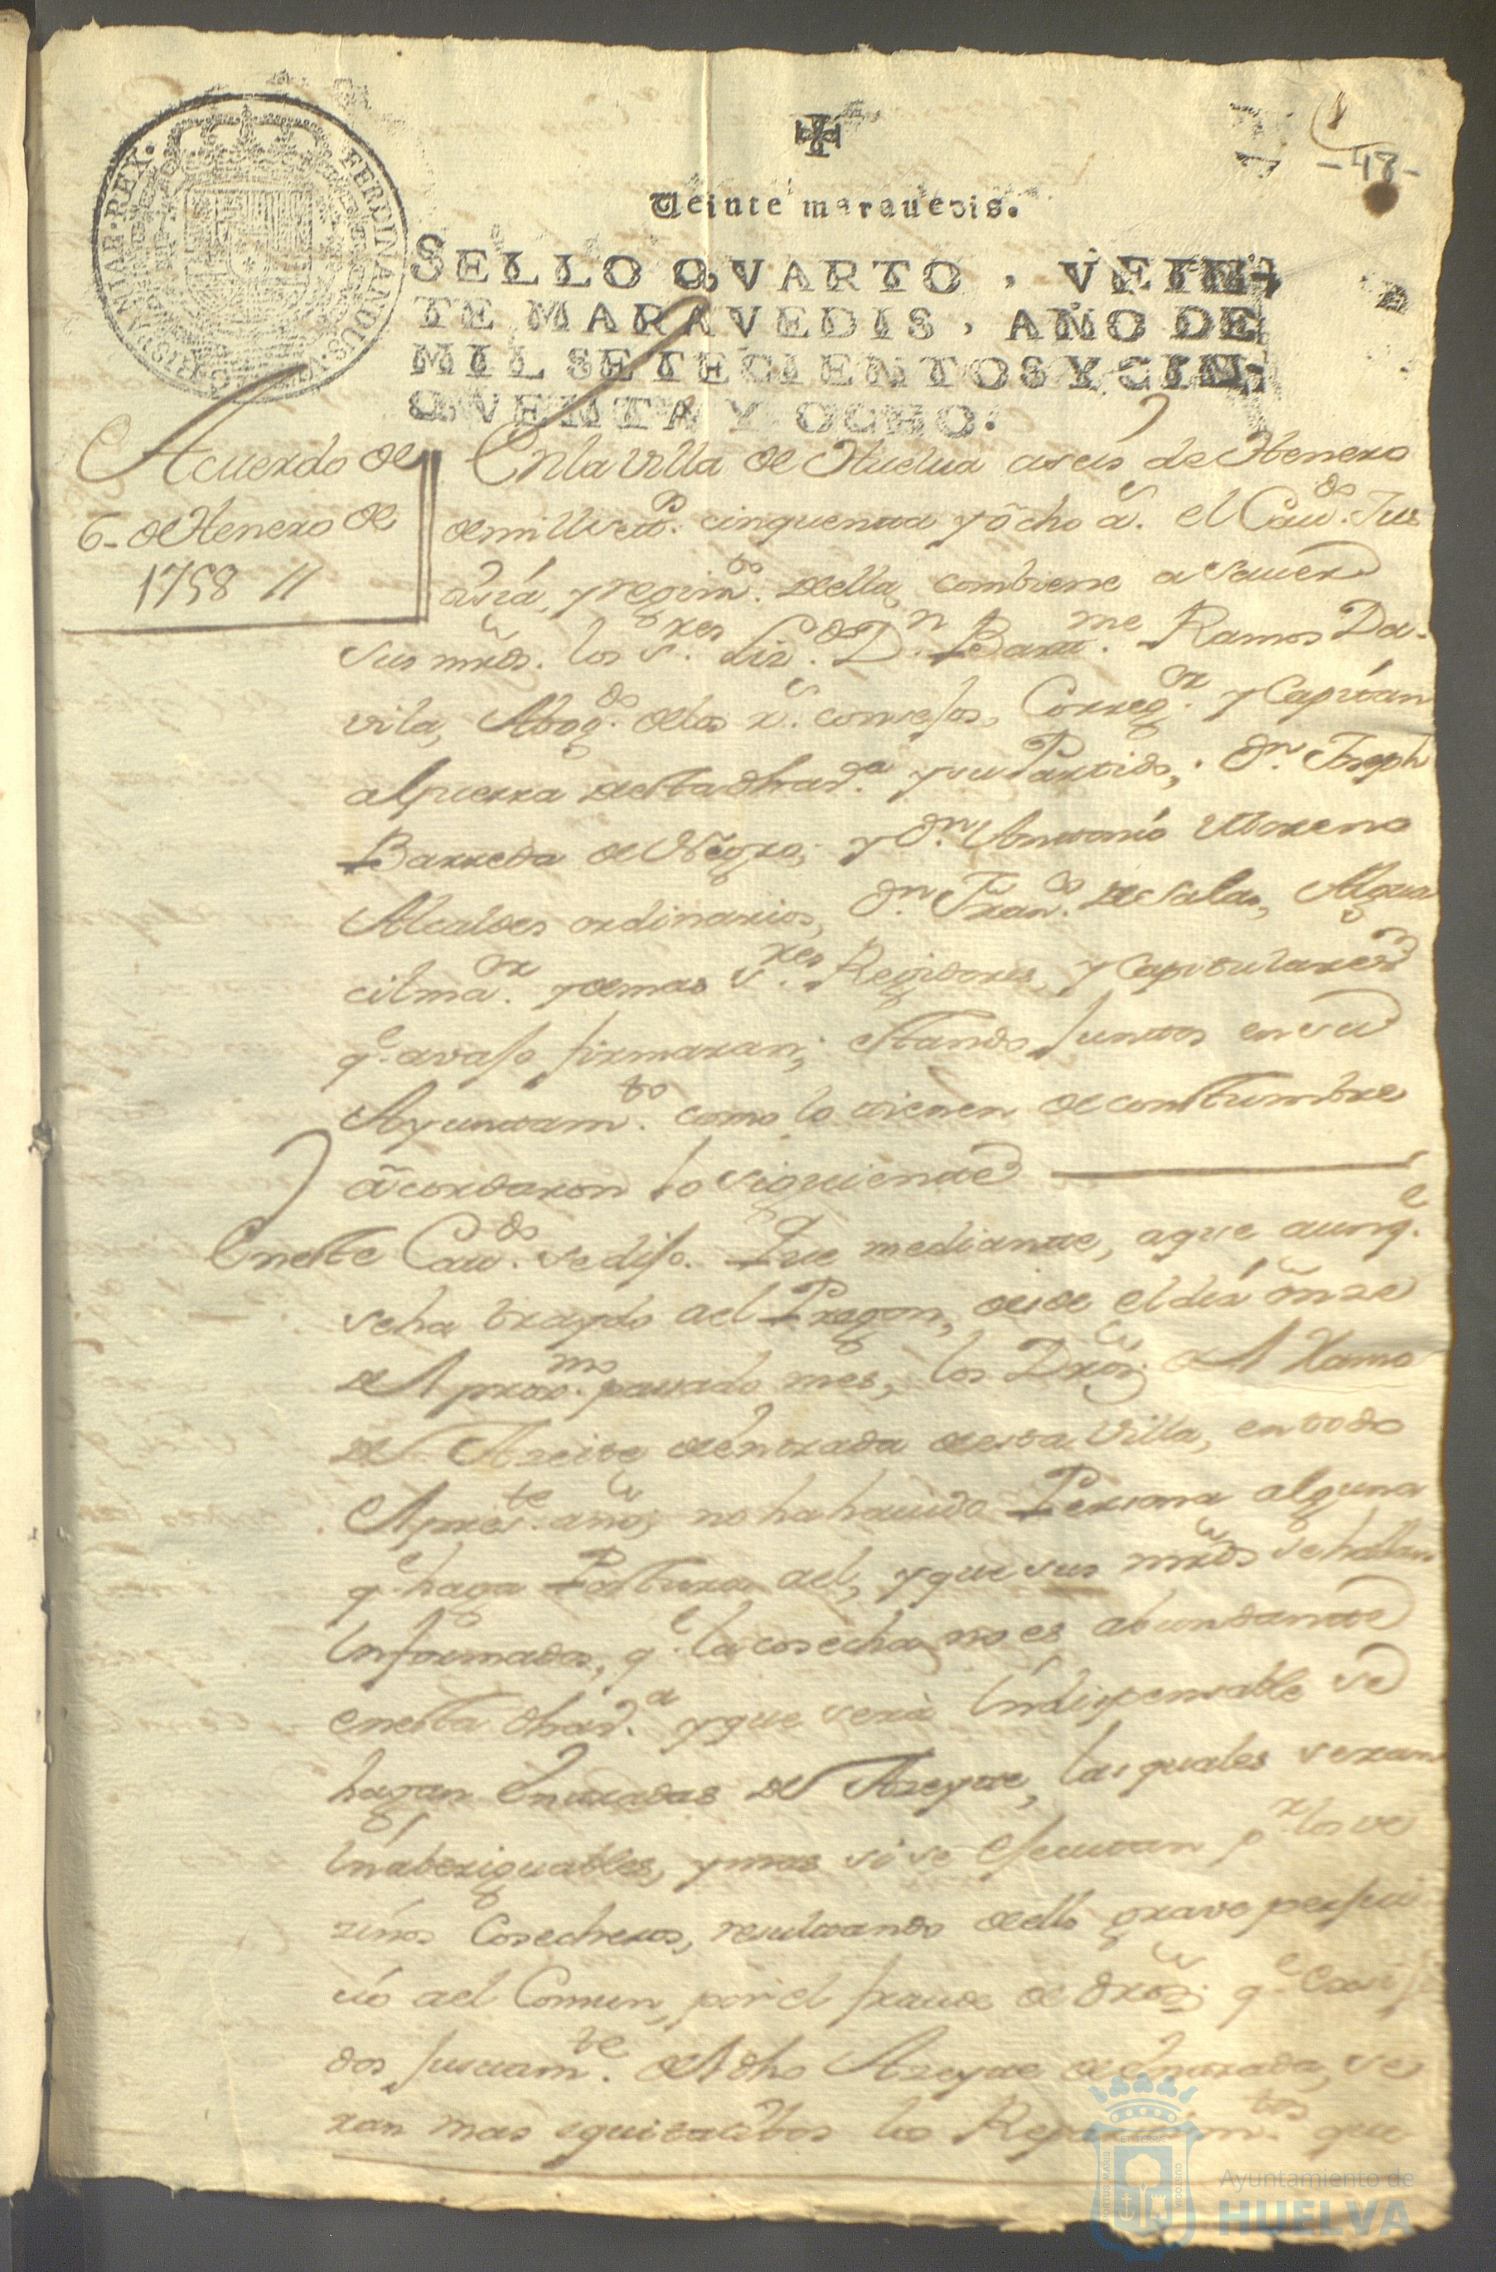 1
-48-
Veinte maravedis.
SELLO QVARTO, VEIN-
TE MARAVEDIS, AÑO DE
MIL SETECIENTOS Y CIN-
QVENTA Y OCHO.
FERDINANDUS VI REX
Acuerdo de
6 de Henero de
1758 //
En la Villa de Huelua a seis de Henero
de mill setº. cinquenta y ôcho as. el Cauᵈᵒ. Jus
ticia, y regimᵗᵒ. della, combiene a sauer
sus mrds. los Sʳᵉˢ. Lizᵈᵒ. Dⁿ. Bartᵐᵉ. Ramos Da-
vila, Abogᵈᵒ. de los rˢ. consejos, Corregᵒʳ. y Capitan
a guerra desta dha vᵃ. y su Partido, Dⁿ. Joseph
Barreda de Negro, y Dⁿ. Antonio Moreno
Alcaldes ordinarios, Dⁿ. Franᶜᵒ. de Salas, Algua
cil maᵒʳ. y demas Sʳᵉˢ. Regidores, y Capitulares
qᵉ. avajo firmaran; estando juntos en su
Ayuntamᵗᵒ. como lo tienen de constumbre
acordaron lo siguiente
En este Cauᵈᵒ. se dijo. Que mediante, a que aunqᵉ.
se ha traydo a el Pregon, desde el dia ônze
del proxᵐᵒ. pasado mes, los Dros. del Ramo
del Azeite de entrada desta Villa, en todo
el presᵗᵉ. año, no ha hauido Persona alguna
qᵉ. haga Postura a el, y que sus mrds. se hallan
Informados, qᵉ. la cosecha no es abundante
en esta dha vᵃ. y que serà Indispensable se
hagan Entradas de Azeyte, las quales seran
Inaberiguables, y mas si se ejecutan pʳ. los ve
zinos Cosecheros, resultando dello grave perjui
cio a el Comun, por el fraude de dros. qᵉ. Exsiji
dos justamᵗᵉ. del dho Azeyte de Entrada, se
ran mas equitatibos los Repartimᵗᵒˢ. que
Ayuntamiento de
HUELVA